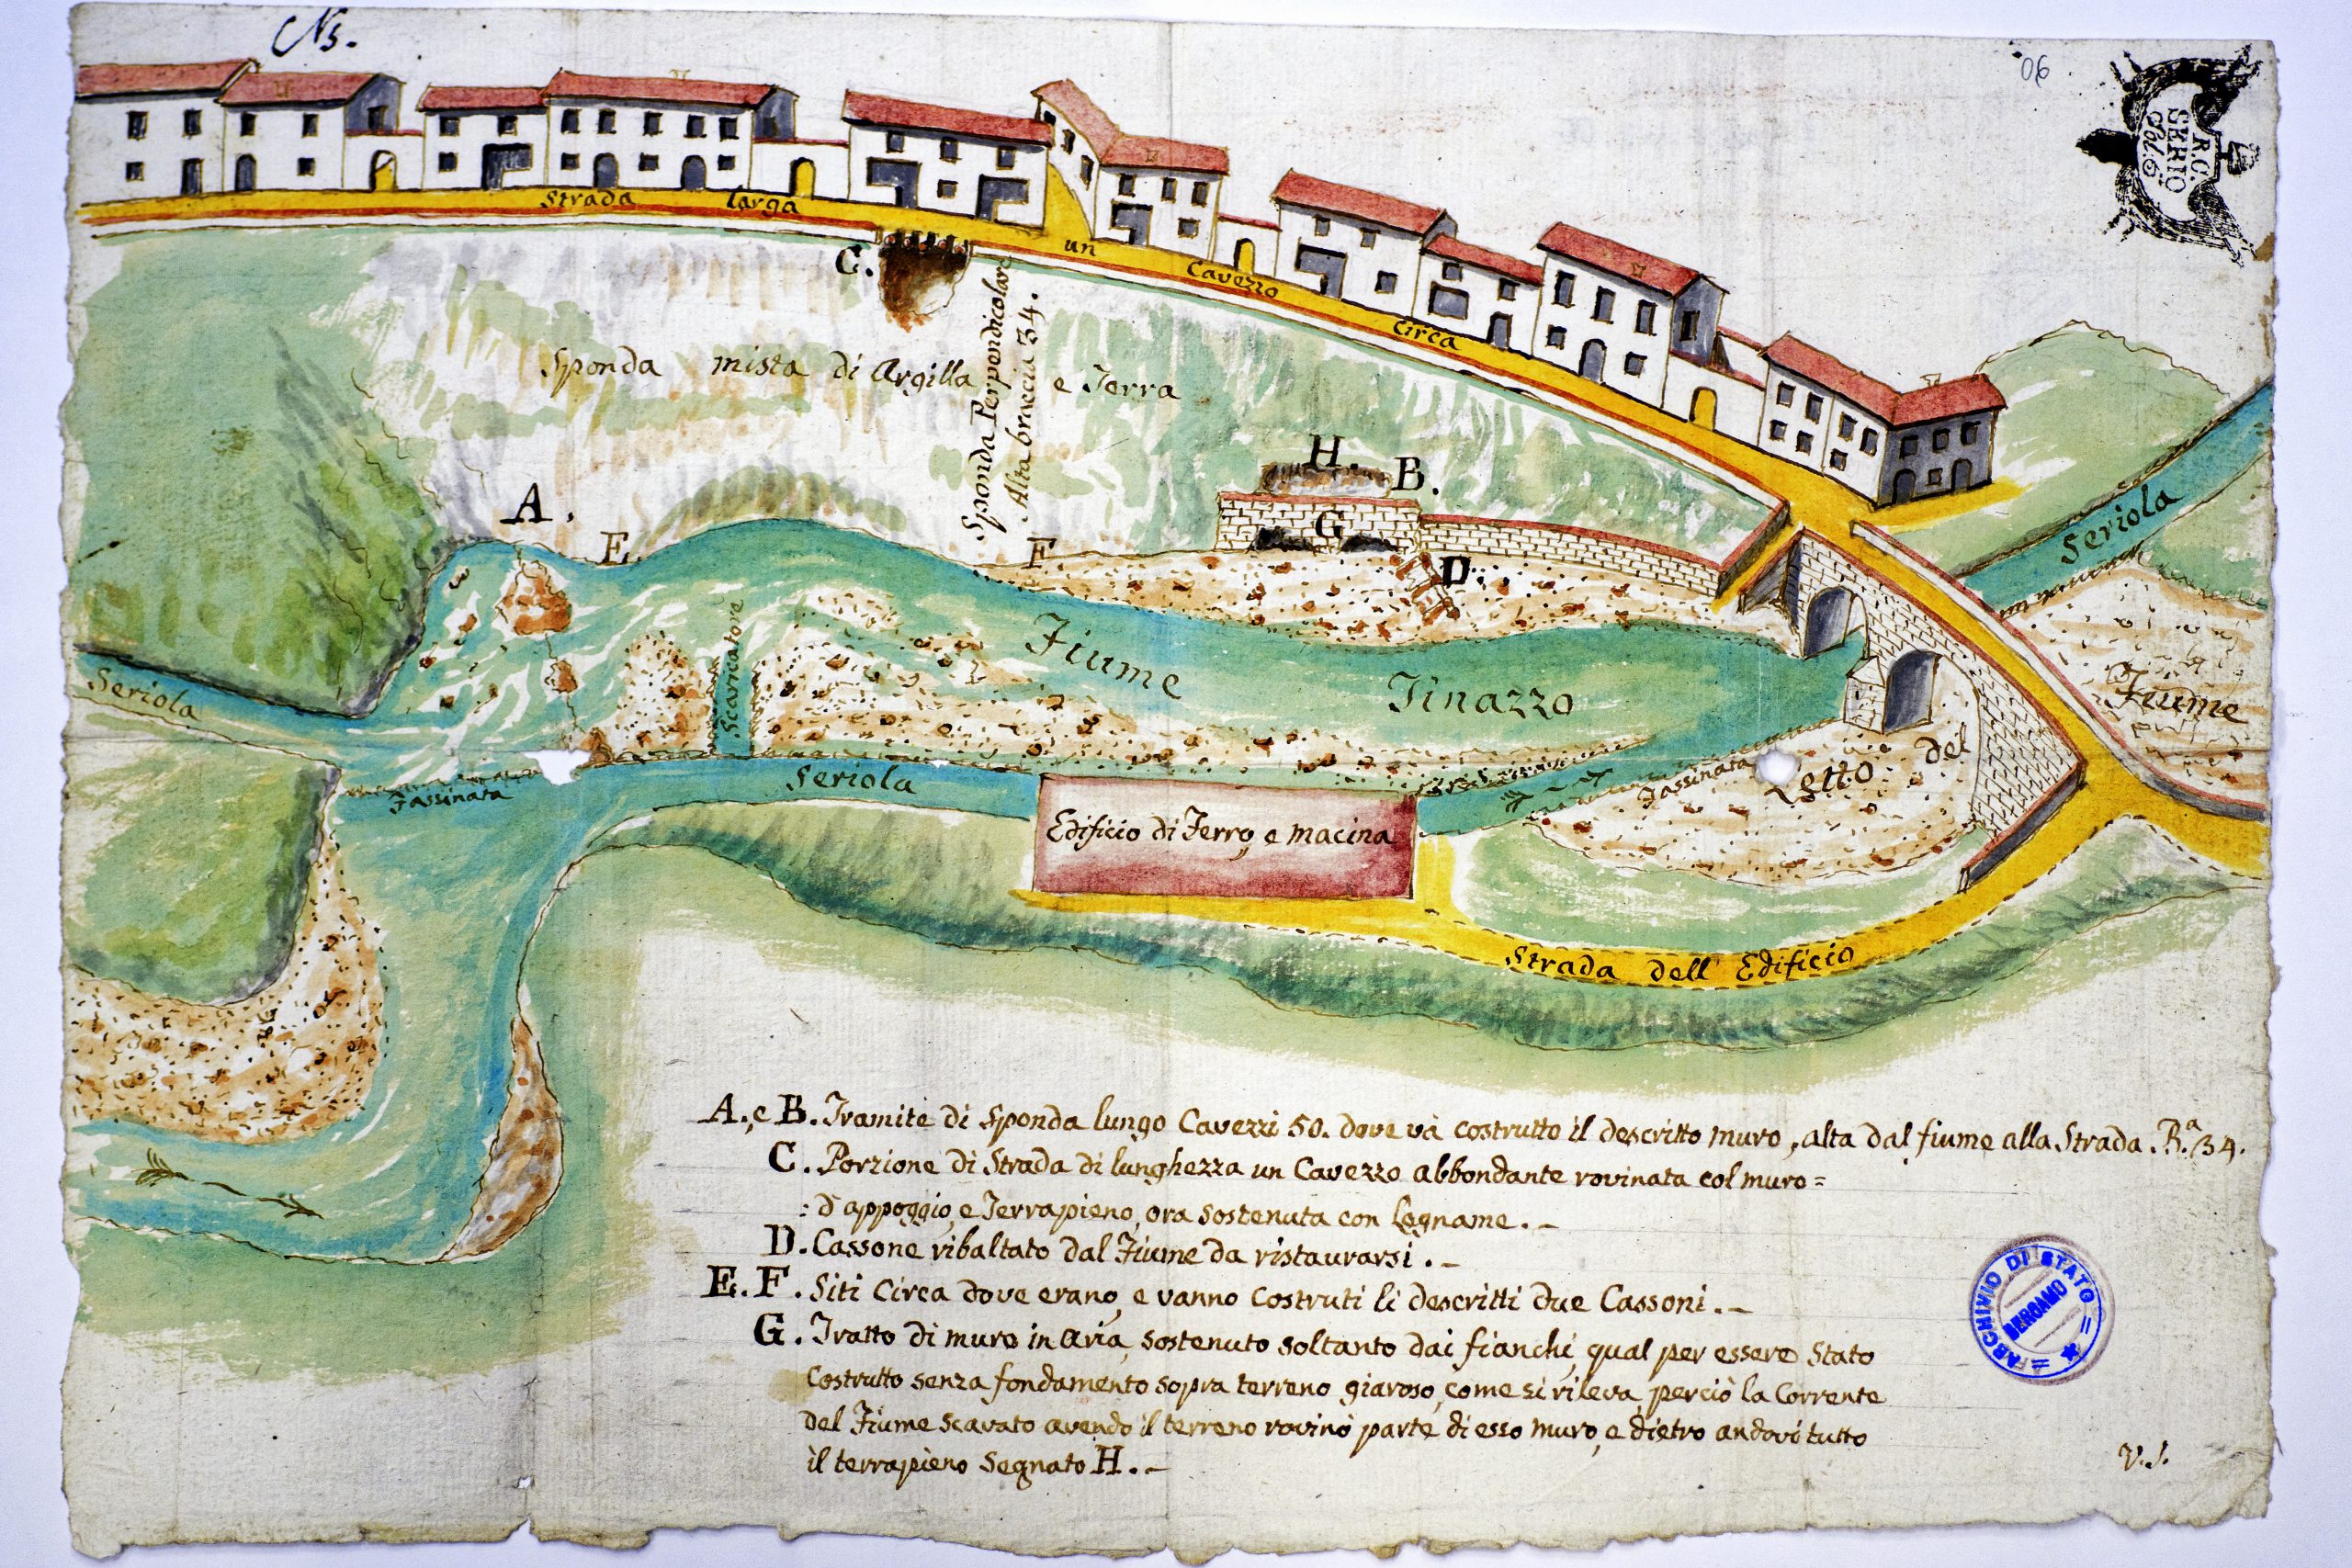 N5.
06
R.C.
SERIO
Col: 6
Strada larga un Cavezzo Circa
C.
Sponda mista di Argilla e Terra
Sponda Perpendicolare
Alta braccia 34.
H.
B.
A.
E.
F
G
D.
Seriola
Seriola
Scaricatore
Fiume Tinazzo
Letto del Fiume
Fassinata
Seriola
Fassinata
Edificio di Ferro, e macina
Strada dell' Edificio
A., e B. Tramite di Sponda lungo Cavezzi 50. dove và costrutto il descritto muro, alta dal fiume alla Strada. B.ª 34.
C. Porzione di Strada di lunghezza un Cavezzo abbondante rovinata col muro =
: d'appoggio, e Terrapieno, ora sostenuta con Legname. -
D. Cassone ribaltato dal Fiume da ristaurarsi. -
E. F. Siti Circa dove erano, e vanno Costruti li descritti due Cassoni. -
G. Tratto di muro in aria, sostenuto soltanto dai fianchi, qual per essere Stato
Costrutto senza fondamento sopra terreno giaroso, come si rileva, perciò la Corrente
del Fiume scavato avendo il terreno rovinò parte di esso muro, e dietro andovi tutto
il terrapieno Segnato H. -
ARCHIVIO DI STATO
BERGAMO
V. S.